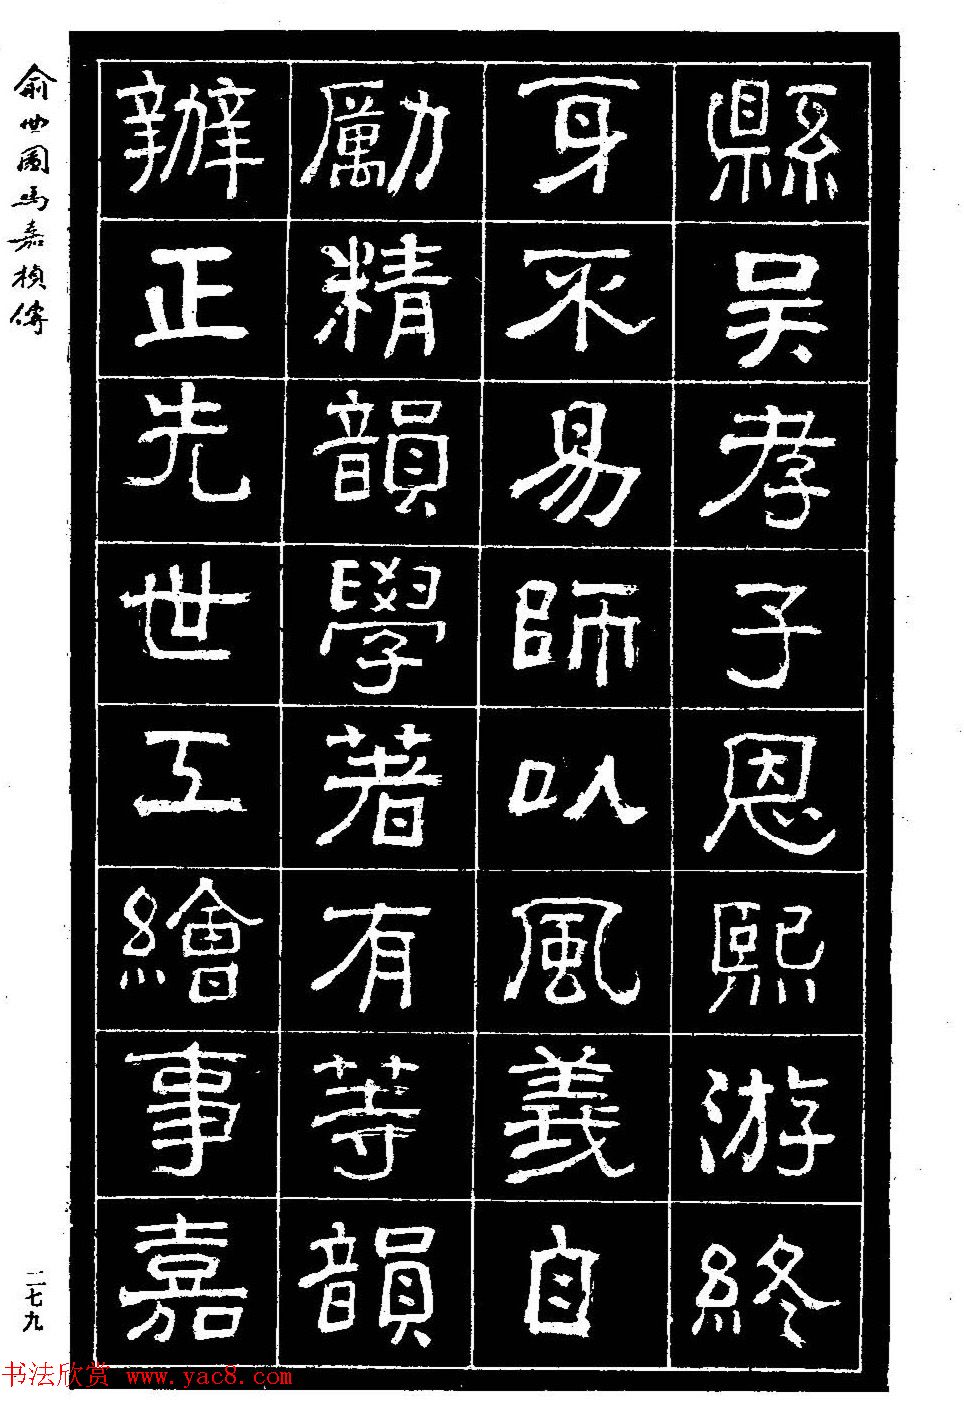 縣吴孝子恩熙游終
身不易師以風義自
勵精韻學著有等韻
辦正先世工繪事嘉
俞世圖馬嘉楨傳
二七九
书法欣赏 www.yac8.com